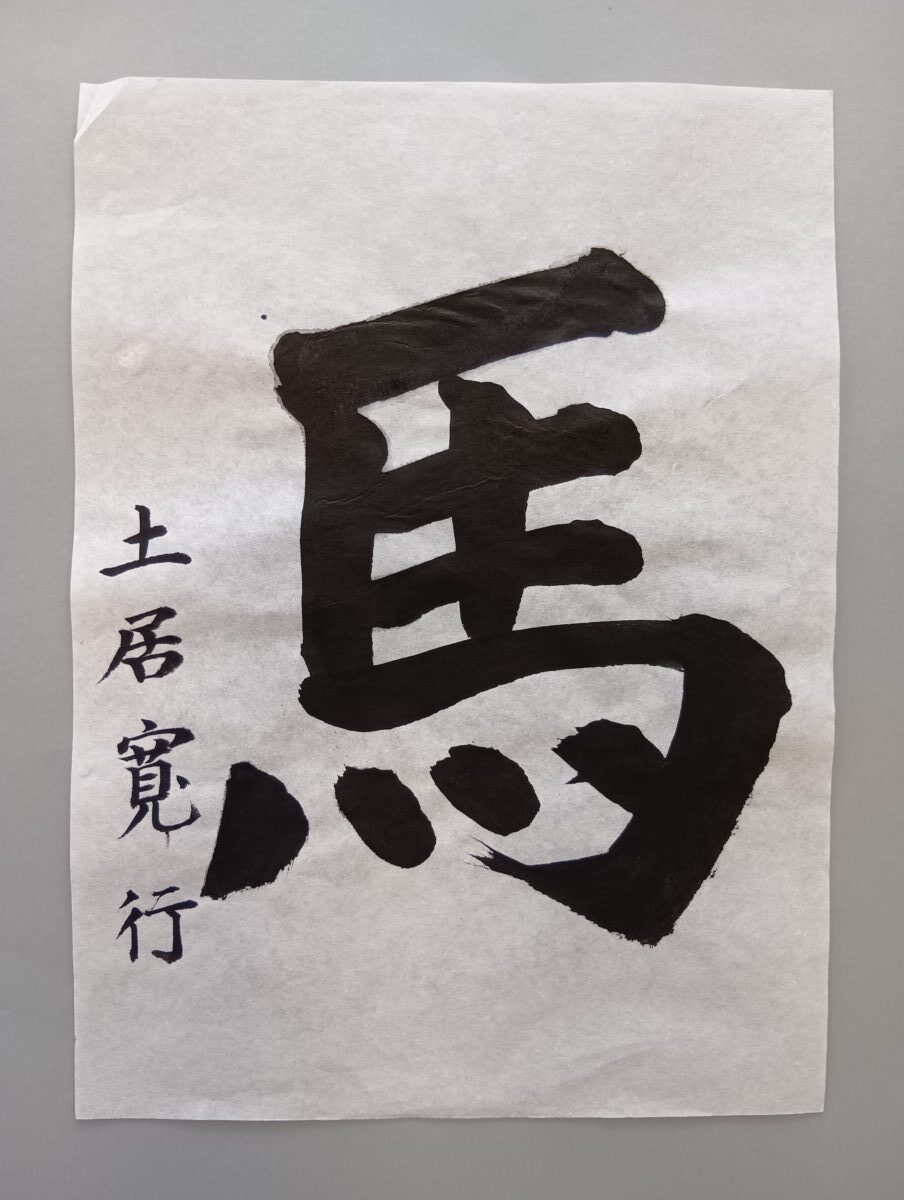 馬
土居寛行